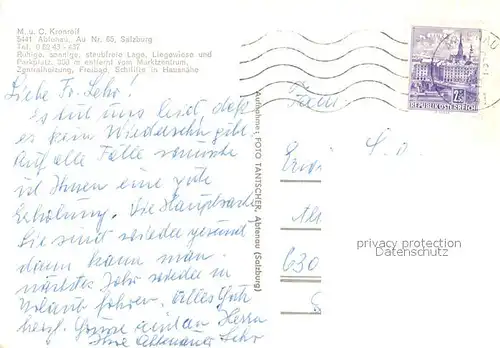 M. u. C. Kronreif
5441 Abtenau, Au Nr. 65, Salzburg
Tel. 0 62 43 - 437
Ruhige, sonnige, staubfreie Lage, Liegewiese und
Parkplatz, 300 m entfernt vom Marktzentrum,
Zentralheizung, Freibad, Schilifte in Hausnähe
Liebe Fr. Lehr!
Es tut uns leid, daß
es kein Wiedersehn gibt.
Auf alle Fälle wünsche
ich Ihnen eine gute
Erholung. Die Hauptsache
Sie sind wieder gesund
dann kann man
nächstes Jahr wieder in
Urlaub fahren. Alles Gute
herzl. Grüsse an Herrn
Ihre Lehr
Aufnahme: FOTO TANTSCHER, Abtenau (Salzburg)
2S
REPUBLIK ÖSTERREICH
Fam.
630
privacy protection
Datenschutz